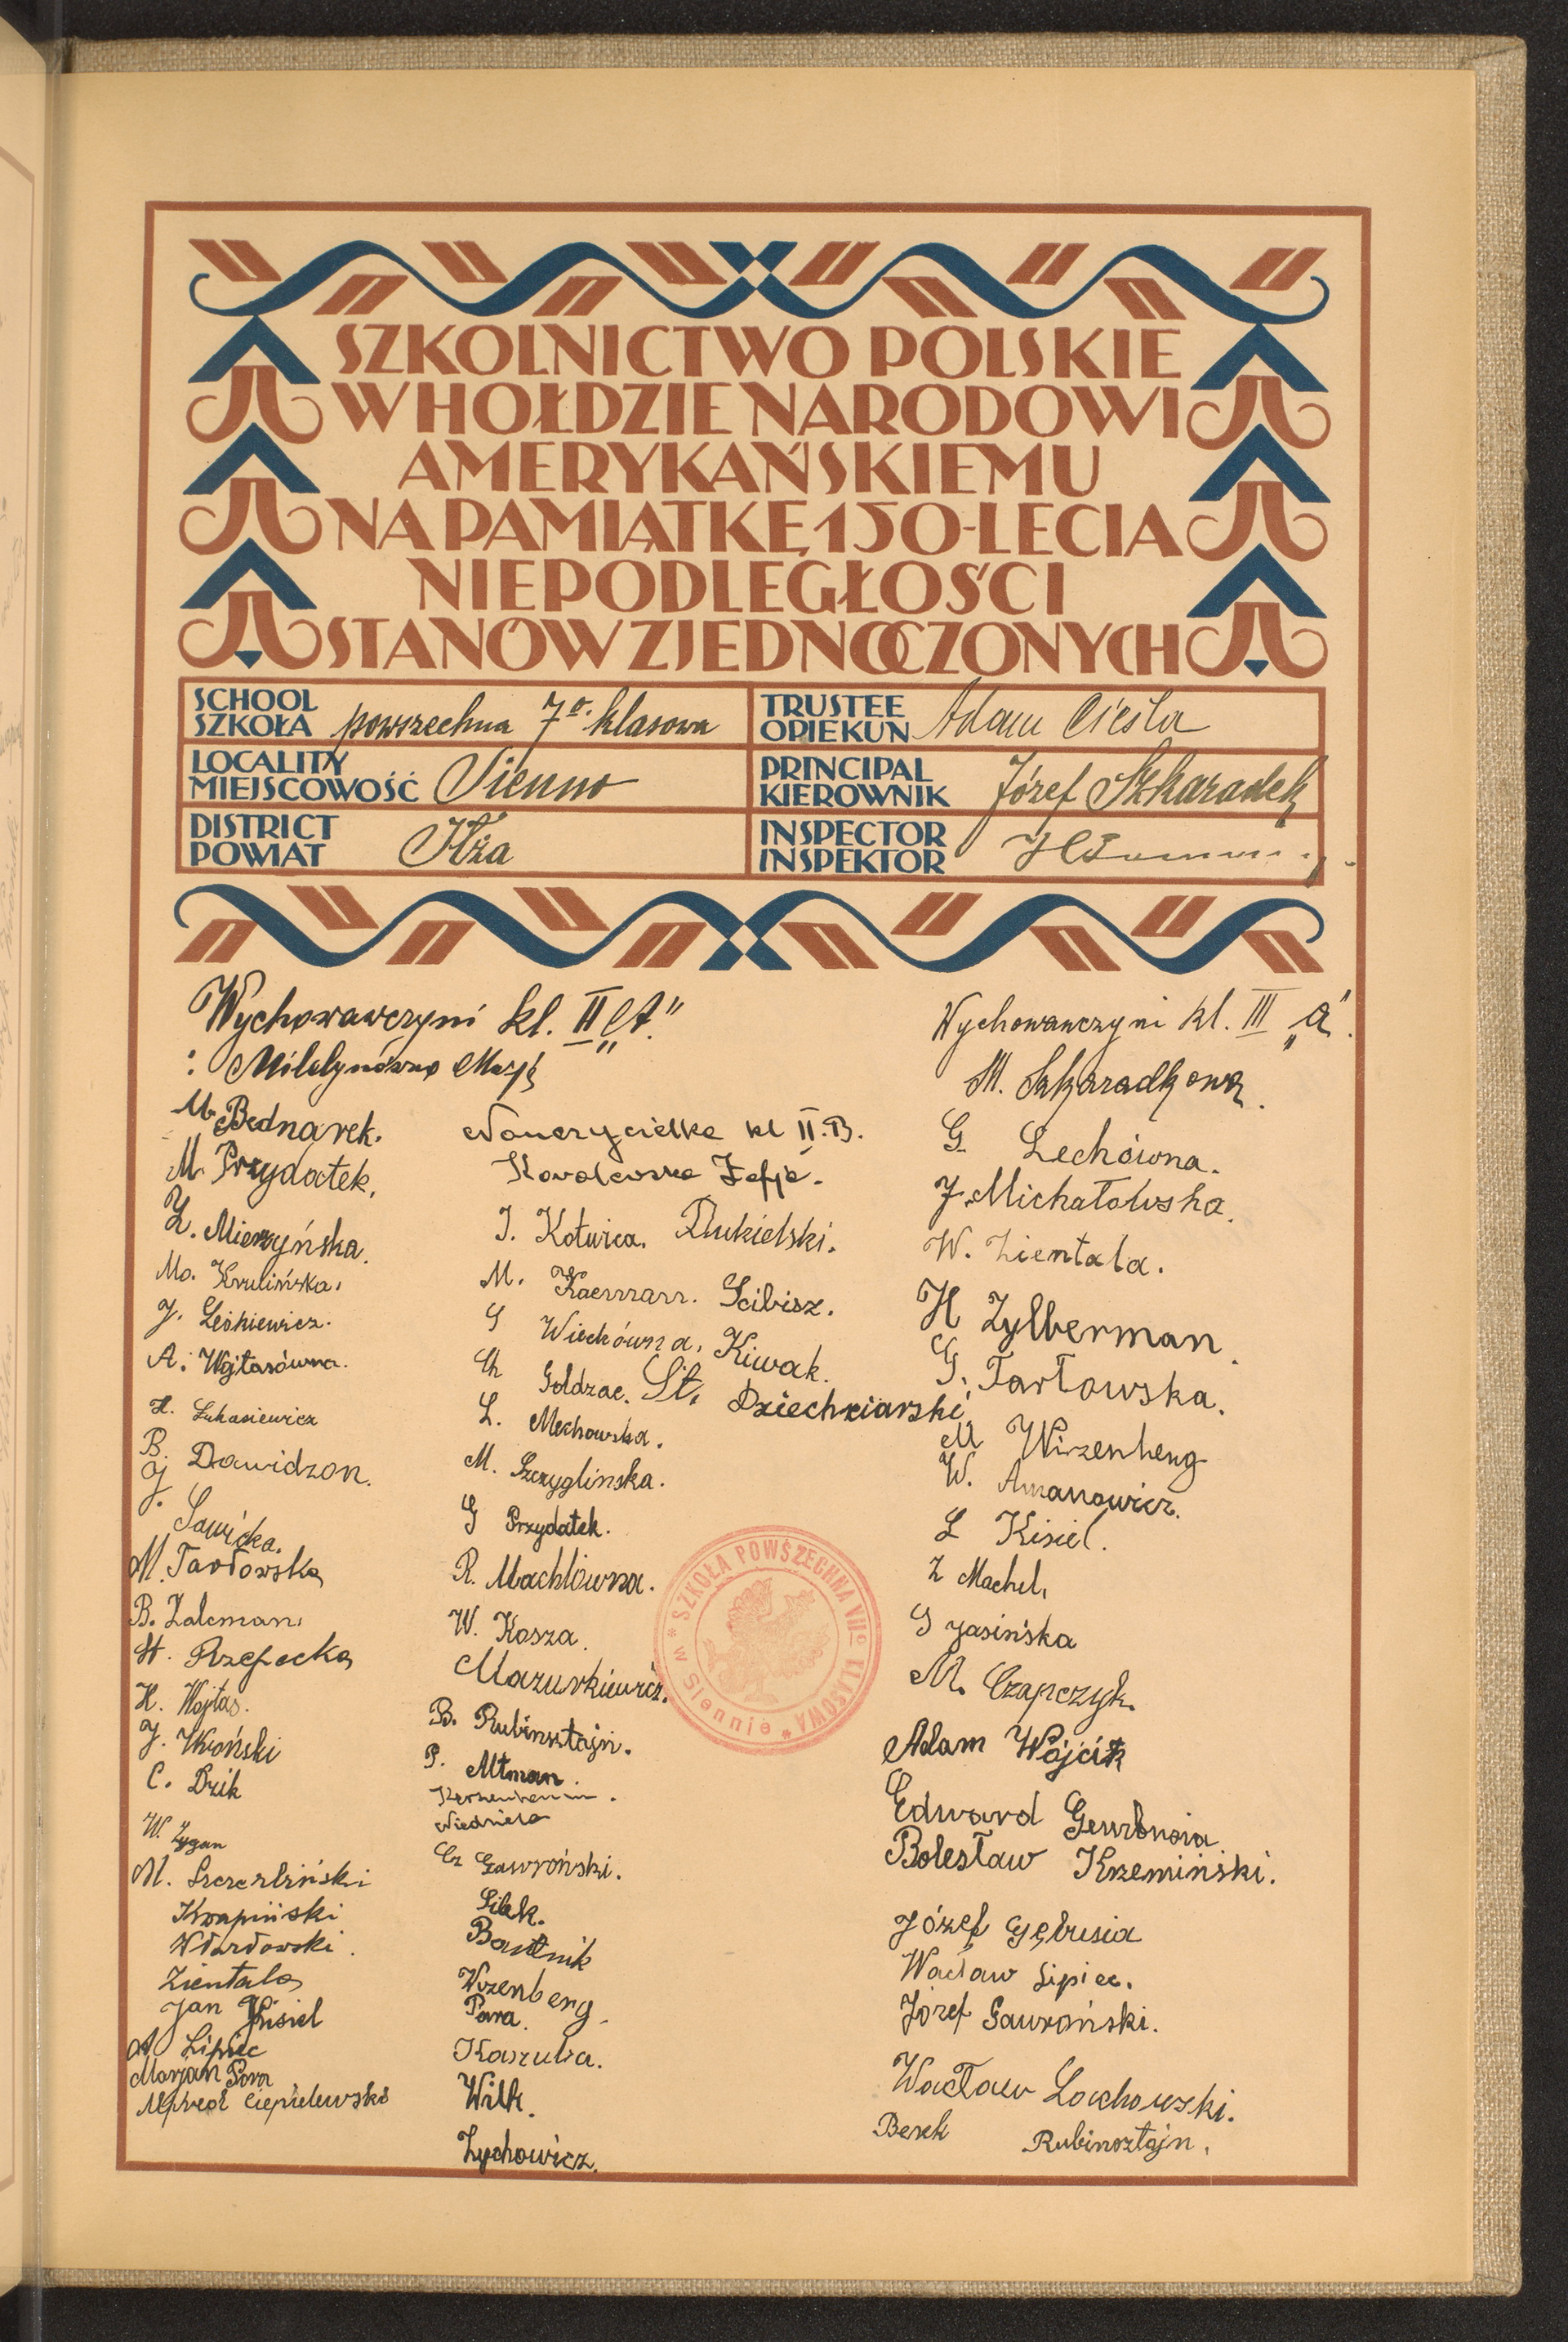 SZKOLNICTWO POLSKIE
W HOŁDZIE NARODOWI
AMERYKAŃSKIEMU
NA PAMIĄTKĘ 150-LECIA
NIEPODLEGŁOŚCI
STANÓW ZJEDNOCZONYCH
SCHOOL
SZKOŁA powszechna 7o. klasowa
TRUSTEE
OPIEKUN Adam Cieśla
LOCALITY
MIEJSCOWOŚĆ Sienno
PRINCIPAL
KIEROWNIK Józef Szkaradek
DISTRICT
POWIAT Iłża
INSPECTOR
INSPEKTOR
Wychowawczyni kl. II „A"
: Marja
M. Bednarek.
M. Przydatek.
Z. Mierzyńska.
Ma. Krulińska.
J. Leśkiewicz.
A. Wojtasówna.
H. Łukasiewicz
B. Dawidzon.
J. Sawicka.
M. Tarłowska
B. Zalcman.
St. Rzepecka
H. Wojtas.
J. Wroński
C. Dzik
W. Zygan
M. Szczerliński
Krapiński
Zientala
Jan Kisiel
A Lipiec
Marjan Para
Alfred Ciepielewski
Nauczycielka kl II. B.
Kowalewska Zofja.
J. Kotwica. Dukielski.
M. Kaerrrarr. Ścibisz.
G Wiechówna, Kiwak.
Ch Goldzac. St. Dziechciarski,
L. Mechowska.
M. Szczyglinska.
G Przydatek.
R. Machlówna.
W. Kosza.
Mazurkiewicz.
B. Rubinsztajn.
P. Altman.
Niedziela
Cz Gawroński.
Silek.
Bartnik
Wrzenberg.
Para.
Kaszuba.
Wilk.
Zychowicz.
* SZKOŁA POWSZECHNA VII-O KLASOWA *
w Siennie
Wychowawczyni kl. III „a".
M. Szkaradkowa.
G. Lechówna.
J. Michałowska.
W. Zientala.
H Zylberman.
G. Tarłowska.
M Wirzenberg
W. Amanowicz.
L Kisiel.
Z Machel.
G Jasińska
M. Czapczyk.
Adam Wójcik
Edward
Bolesław Krzemiński.
Józef Gębusia
Wacław Lipiec.
Józef Gawroński.
Wacław Lachowski.
Berek Rubinsztajn.